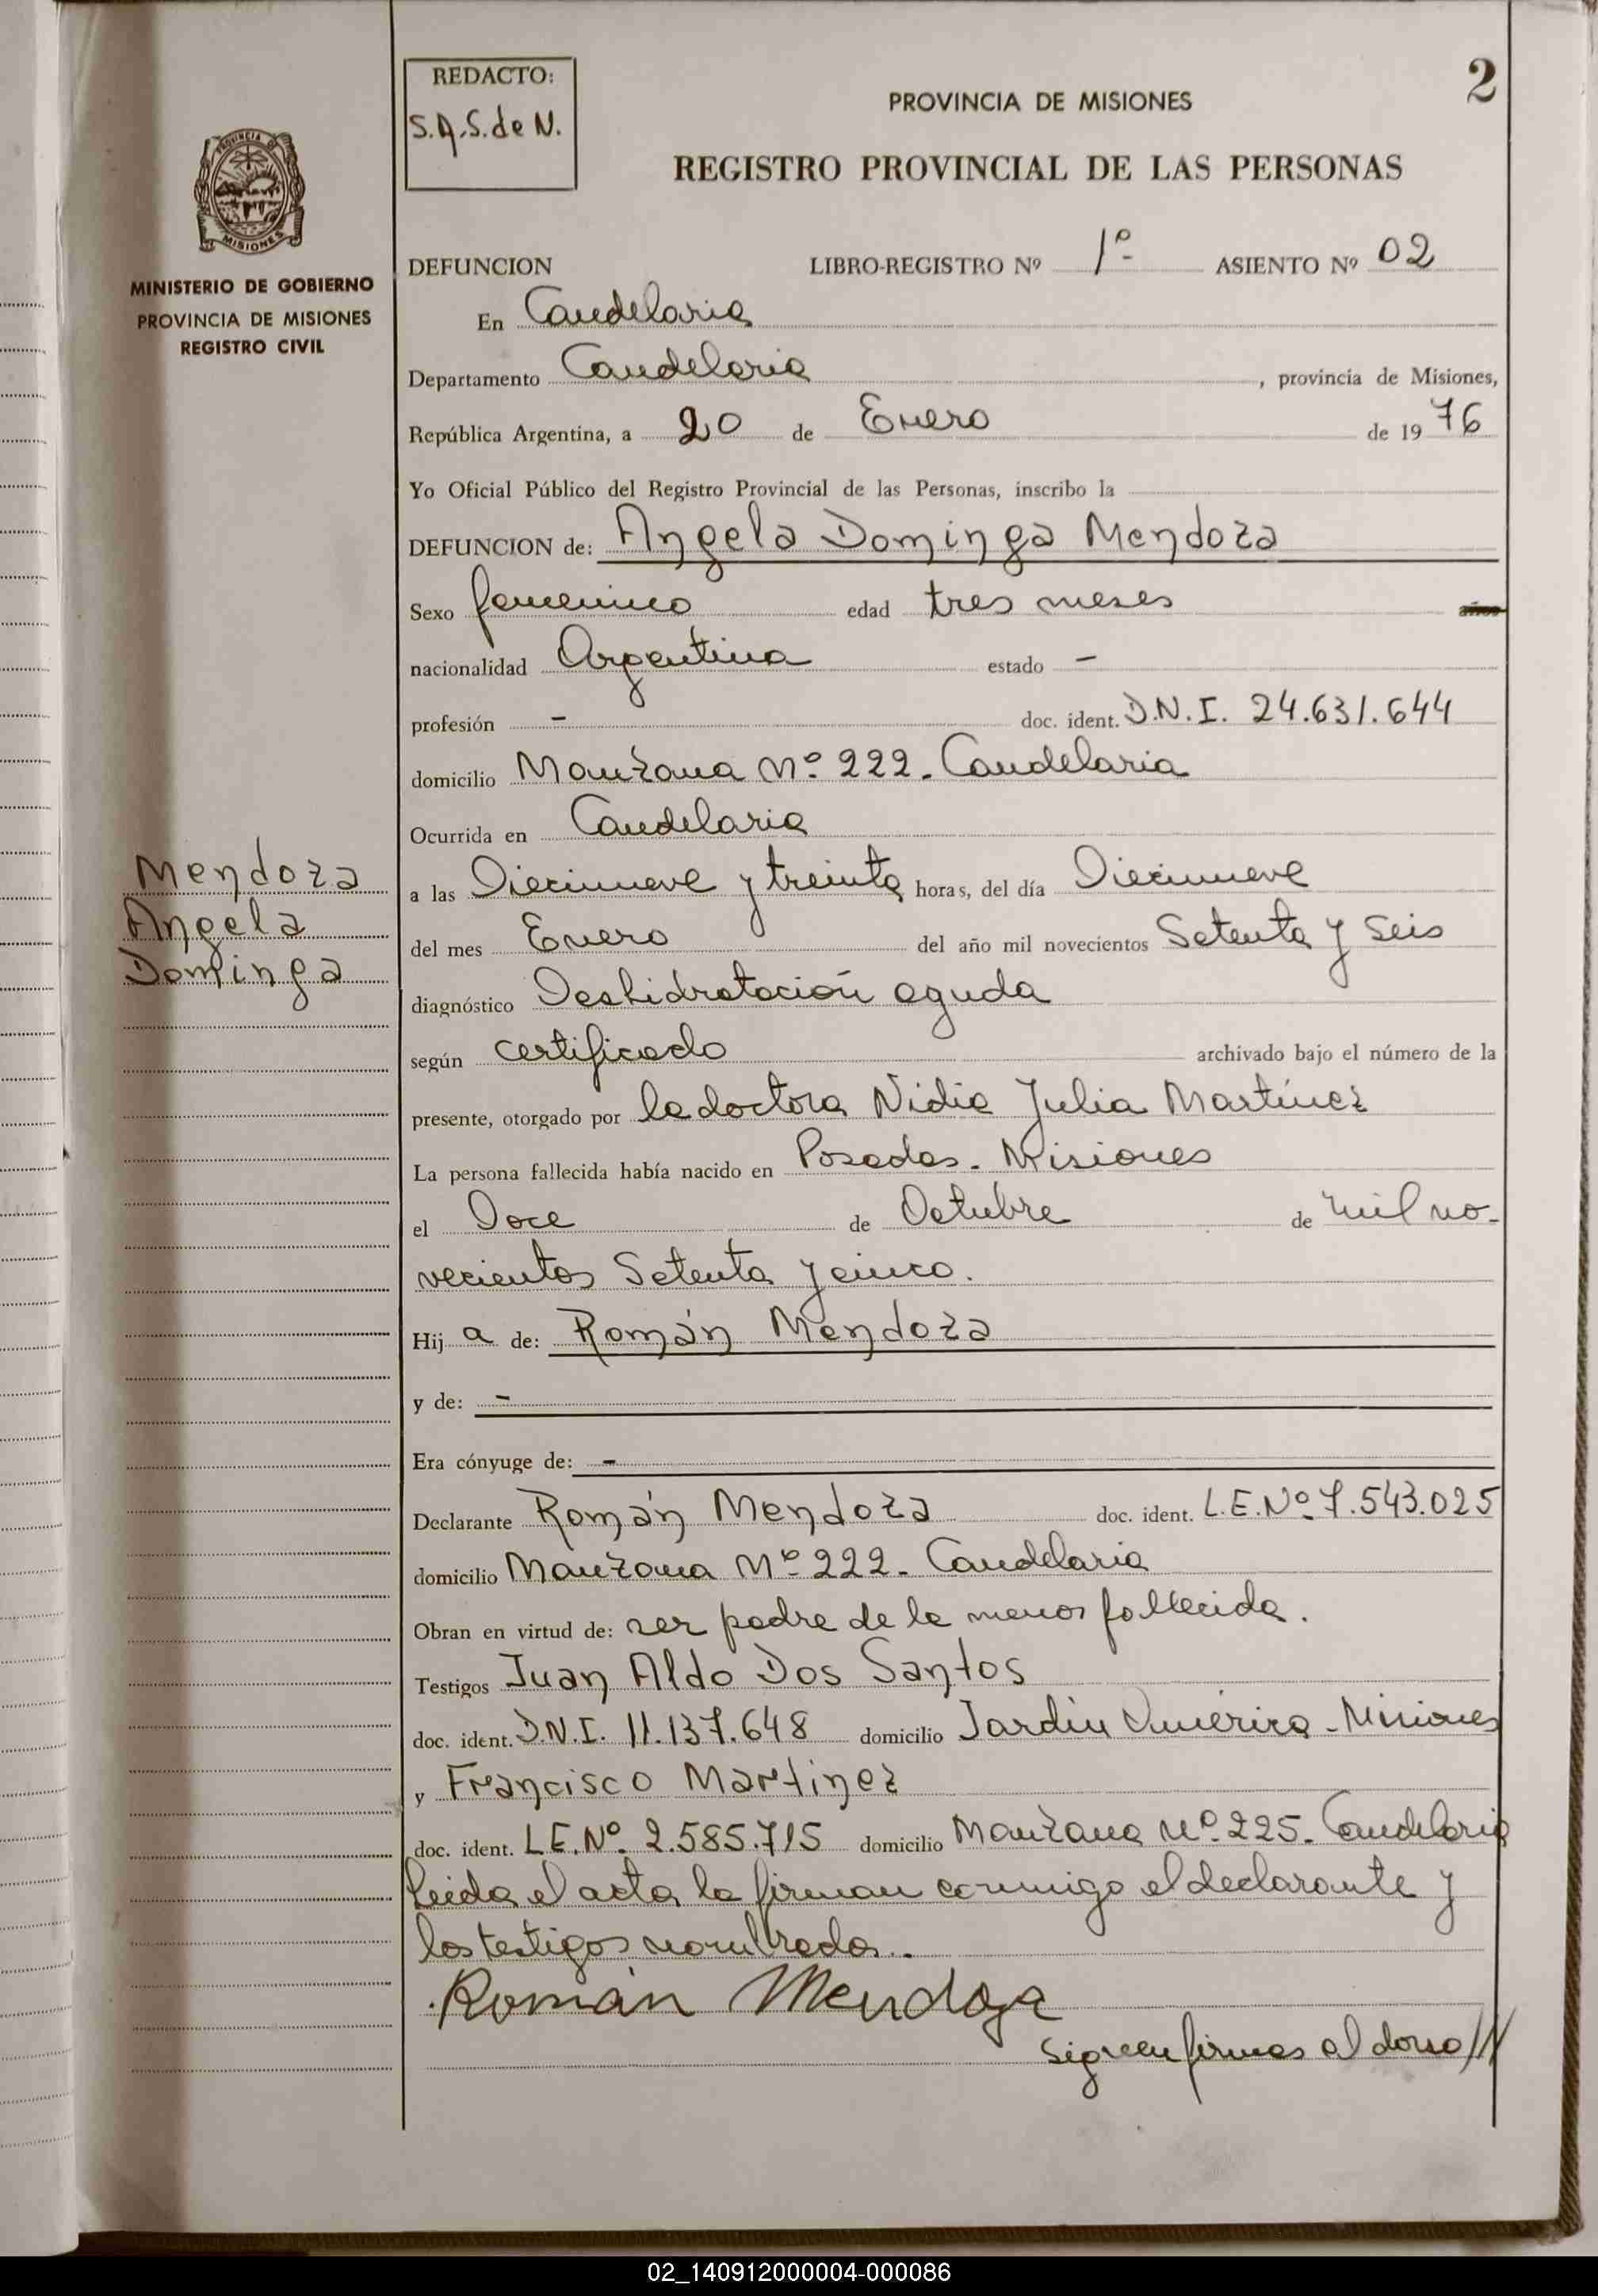 2
REDACTO:
S.A.S. de N.
PROVINCIA DE MISIONES
REGISTRO PROVINCIAL DE LAS PERSONAS
PROVINCIA DE
MISIONES
MINISTERIO DE GOBIERNO
PROVINCIA DE MISIONES
REGISTRO CIVIL
DEFUNCION LIBRO-REGISTRO Nº 1º- ASIENTO Nº 02
En Candelaria
Departamento Candelaria, provincia de Misiones,
República Argentina, a 20 de Enero de 1976
Yo Oficial Público del Registro Provincial de las Personas, inscribo la
DEFUNCION de: Angela Dominga Mendoza
Sexo femenino edad tres meses años
nacionalidad Argentina estado -
profesión - doc. ident. D.N.I. 24.631.644
domicilio Manzana Nº 222- Candelaria
Ocurrida en Candelaria
Mendoza
Angela
Dominga
a las Diecinueve y treinta horas, del día Diecinueve
del mes Enero del año mil novecientos Setenta y Seis
diagnóstico Deshidratación aguda
según certificado archivado bajo el número de la
presente, otorgado por la doctora Nidia Julia Martínez
La persona fallecida había nacido en Posadas- Misiones
el Doce de Octubre de mil no-
vecientos Setenta y cinco.
Hija de: Román Mendoza
y de: -
Era cónyuge de: -
Declarante Román Mendoza doc. ident. L.E.Nº 7.543.025
domicilio Manzana Nº 222- Candelaria
Obran en virtud de: ser padre de la menor fallecida.
Testigos Juan Aldo Dos Santos
doc. ident. D.N.I. 11.137.648 domicilio Jardín América - Misiones
y Francisco Martinez
doc. ident. L.E.Nº 2.585.715 domicilio Manzana Nº 225- Candelaria
Leida el acta la firman conmigo el declarante y
los testigos nombrados.-
Román Mendoza
Siguen firmas al dorso //
02_140912000004-000086